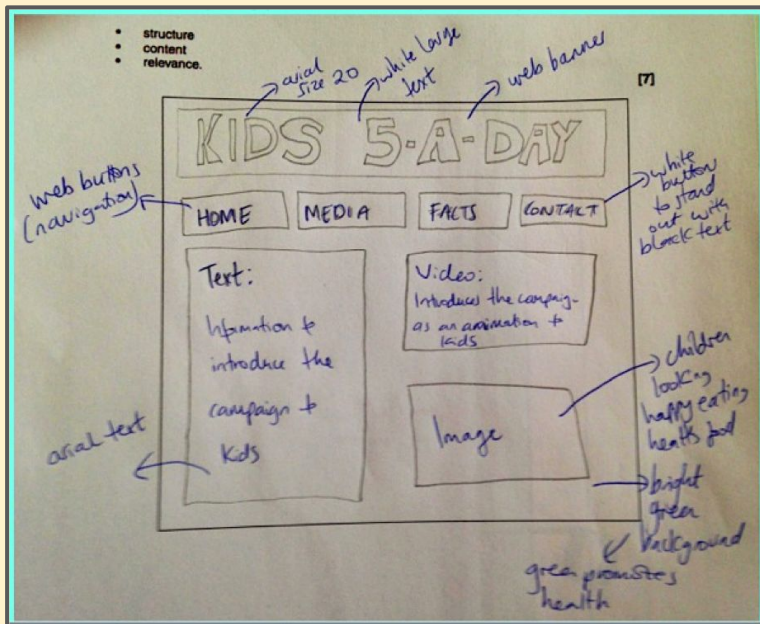 structure
content
relevance.
arial
size 20
white large
text
web banner
[7]
KIDS 5-A-DAY
web buttons
(navigation)
HOME
MEDIA
FACTS
CONTACT
white
button
to stand
out with
black text
Text:
Information to
introduce the
campaign to
Kids
Video:
Introduces the campaig-
as an animation to
kids
Image
arial text
children
looking
happy eating
food
bright
green
background
green promotes
health